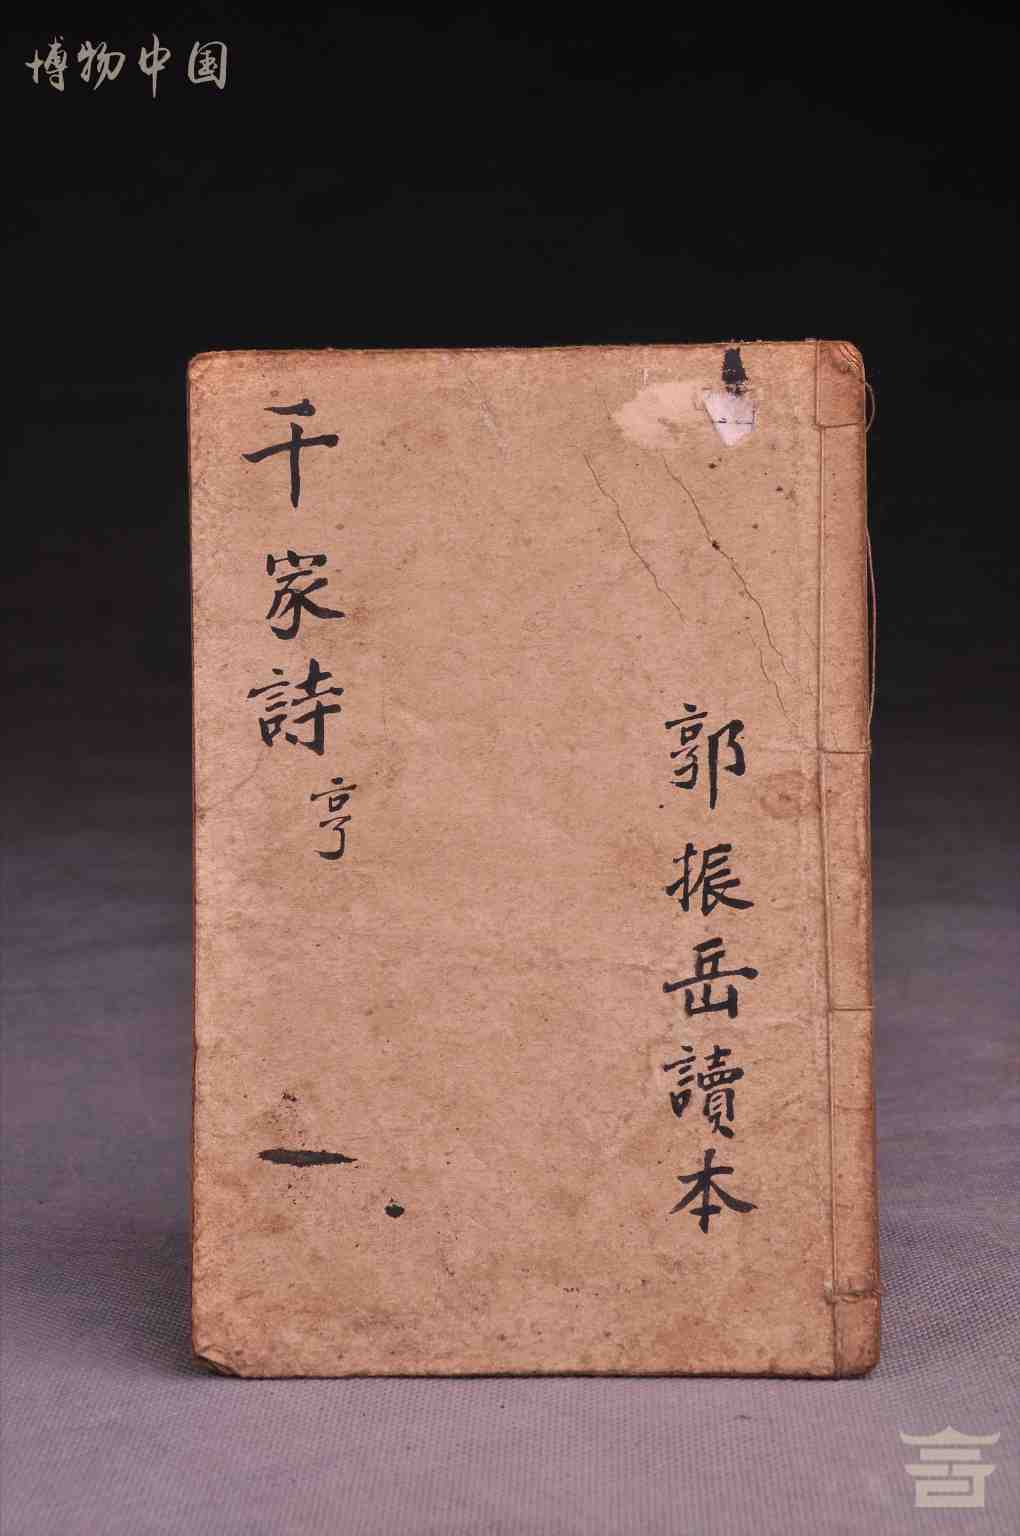 博物中国
郭振岳讀本
千家詩 亨